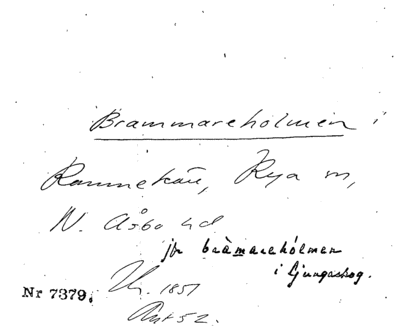 Brammareholmen i
Rannekärr, Rya sn,
N. Åsbo hd
jfr bràmarehólmen
i Ljungaskog.
Nr 7379.
1851